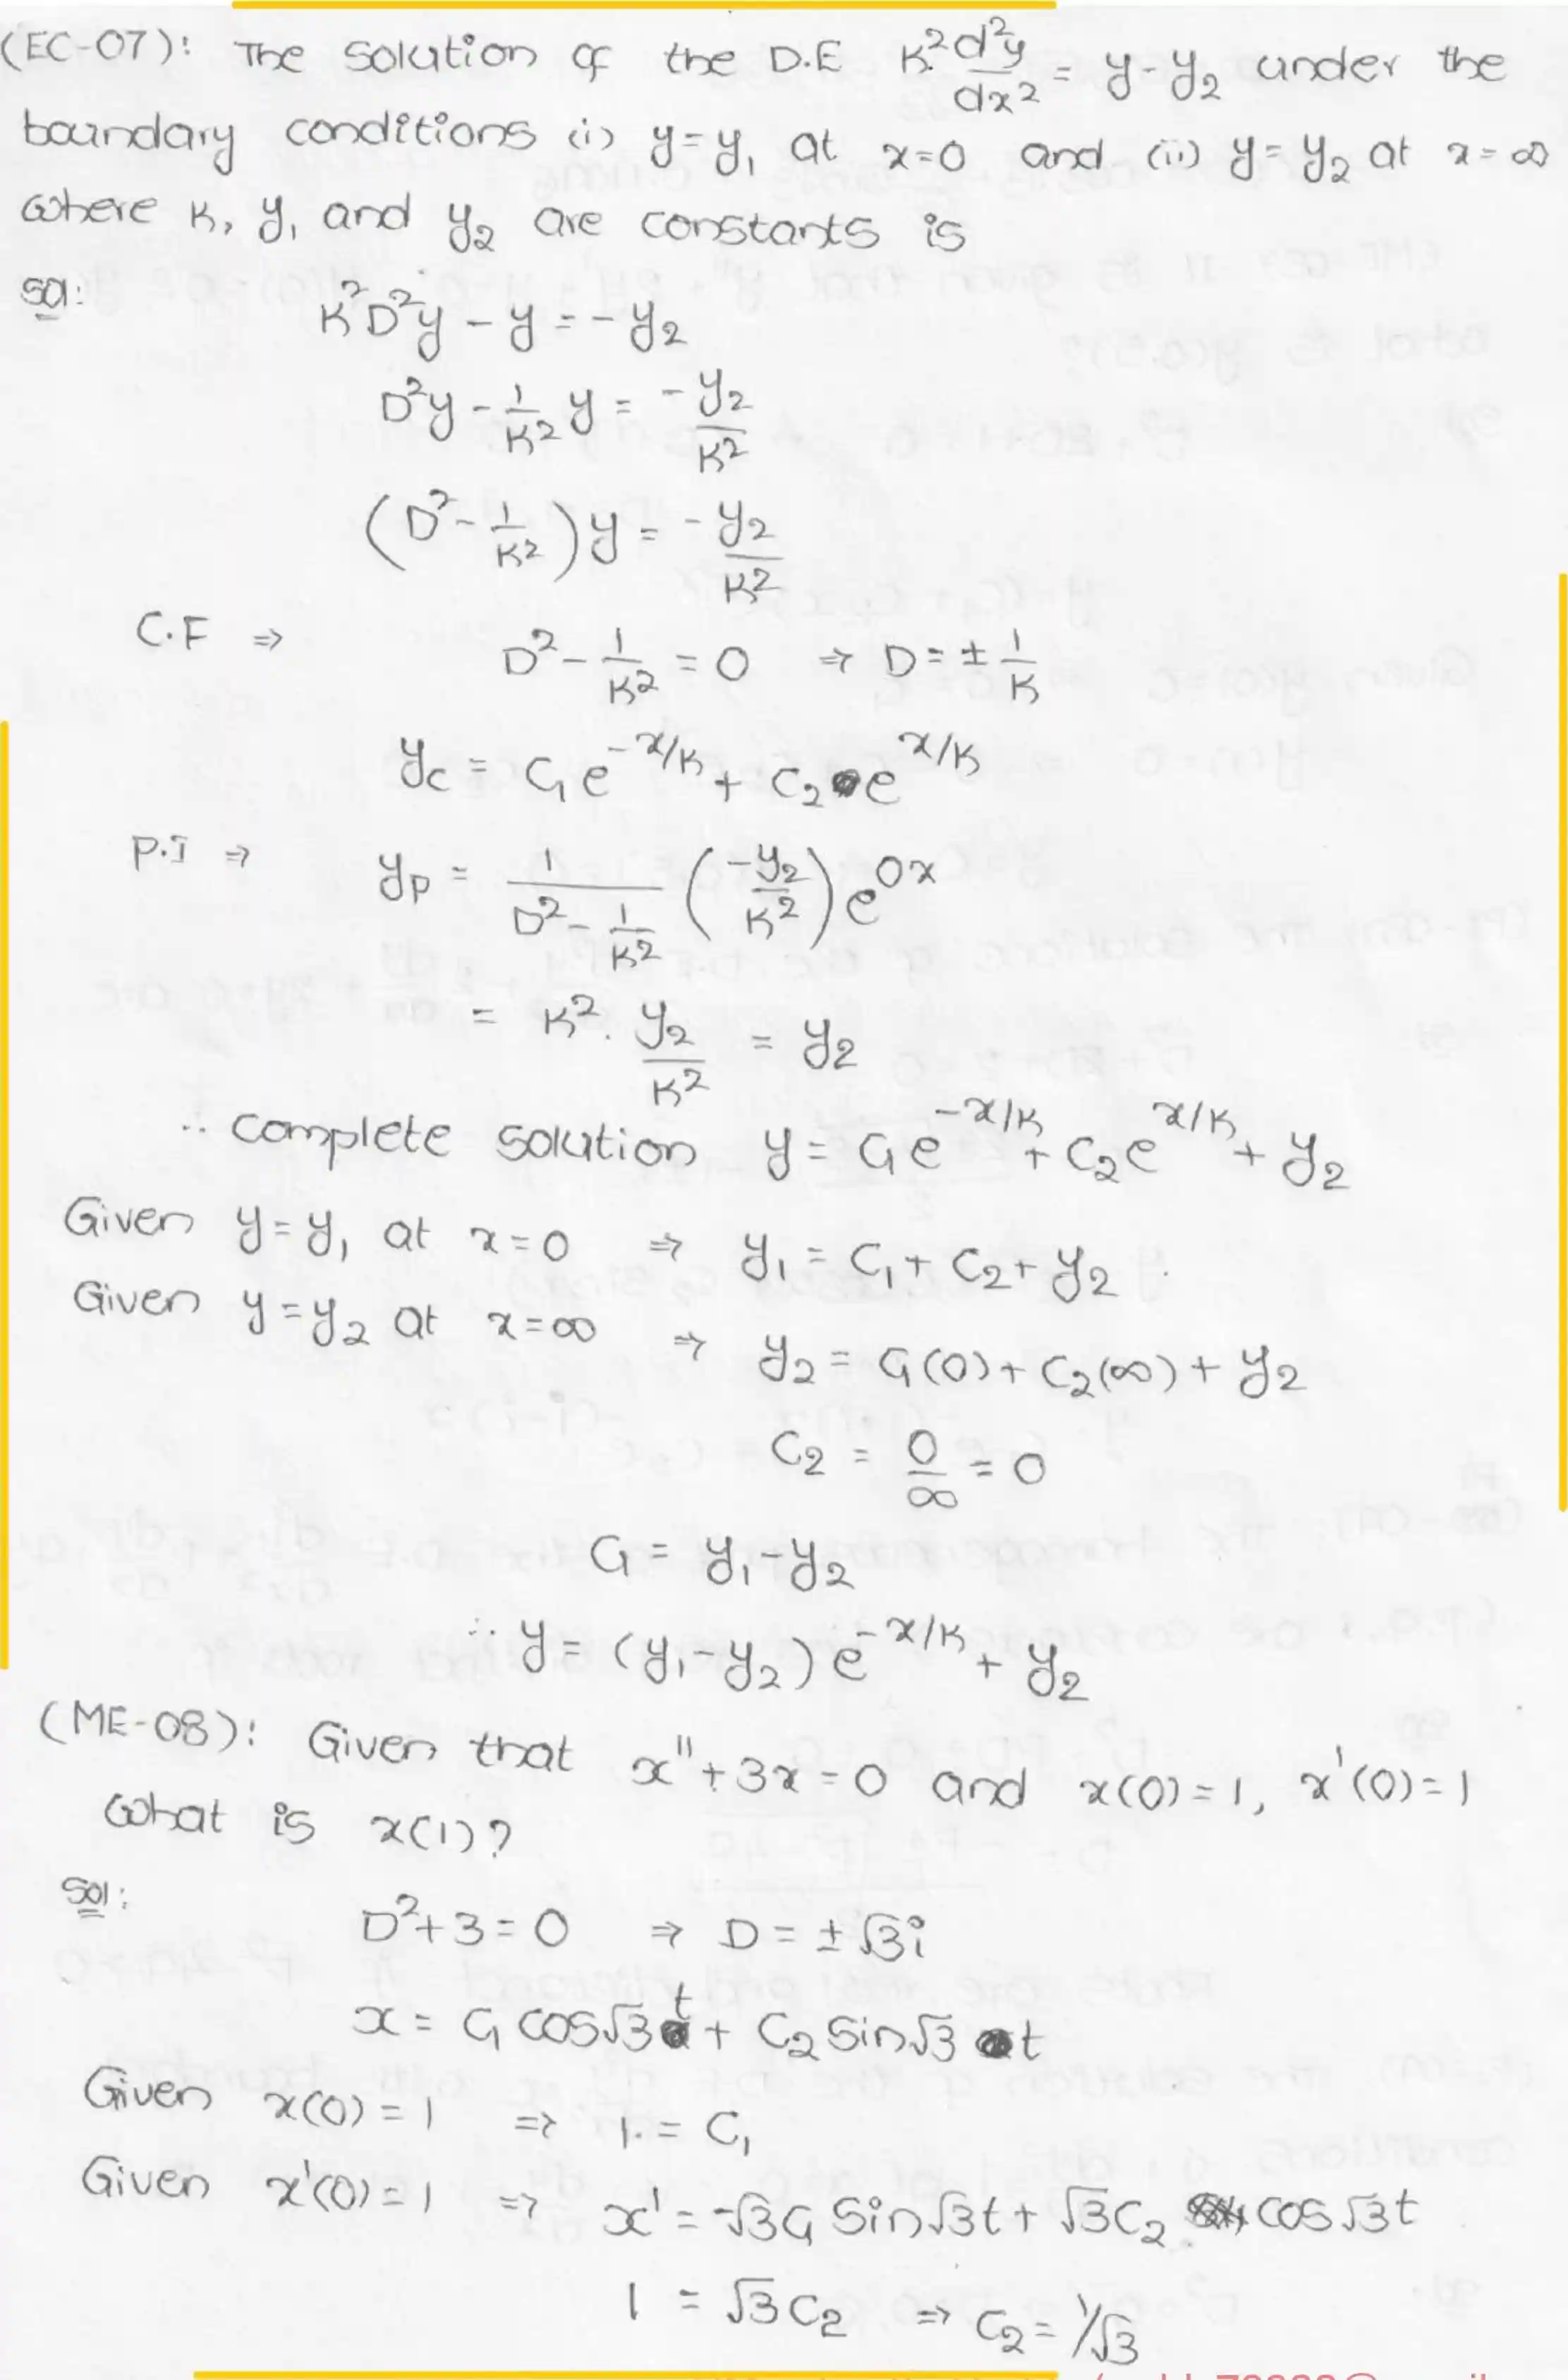 (EC-07): The solution of the D.E K² d²y/dx² = y-y₂ under the
boundary conditions (i) y=y₁ at x=0 and (ii) y=y₂ at x=∞
where K, y₁ and y₂ are constants is
Sol:
K²D²y - y = -y₂
D²y - 1/K² y = -y₂/K²
(D² - 1/K²)y = -y₂/K²
C.F ⇒ D² - 1/K² = 0 ⇒ D = ± 1/K
y_c = C₁e^(-x/K) + C₂e^(x/K)
P.I ⇒ y_p = 1/(D² - 1/K²) (-y₂/K²) e^(0x)
= K². y₂/K² = y₂
∴ complete solution y = C₁e^(-x/K) + C₂e^(x/K) + y₂
Given y=y₁ at x=0 ⇒ y₁ = C₁+C₂+y₂
Given y=y₂ at x=∞ ⇒ y₂ = C₁(0)+C₂(∞)+y₂
C₂ = 0/∞ = 0
C₁ = y₁-y₂
∴ y = (y₁-y₂)e^(-x/K) + y₂
(ME-08): Given that x''+3x=0 and x(0)=1, x'(0)=1
what is x(1)?
Sol:
D²+3=0 ⇒ D = ±√3i
x = C₁ cos√3t + C₂ sin√3 t
Given x(0)=1 ⇒ 1 = C₁
Given x'(0)=1 ⇒ x' = -√3C₁ sin√3t + √3C₂ cos√3t
1 = √3C₂ ⇒ C₂ = 1/√3